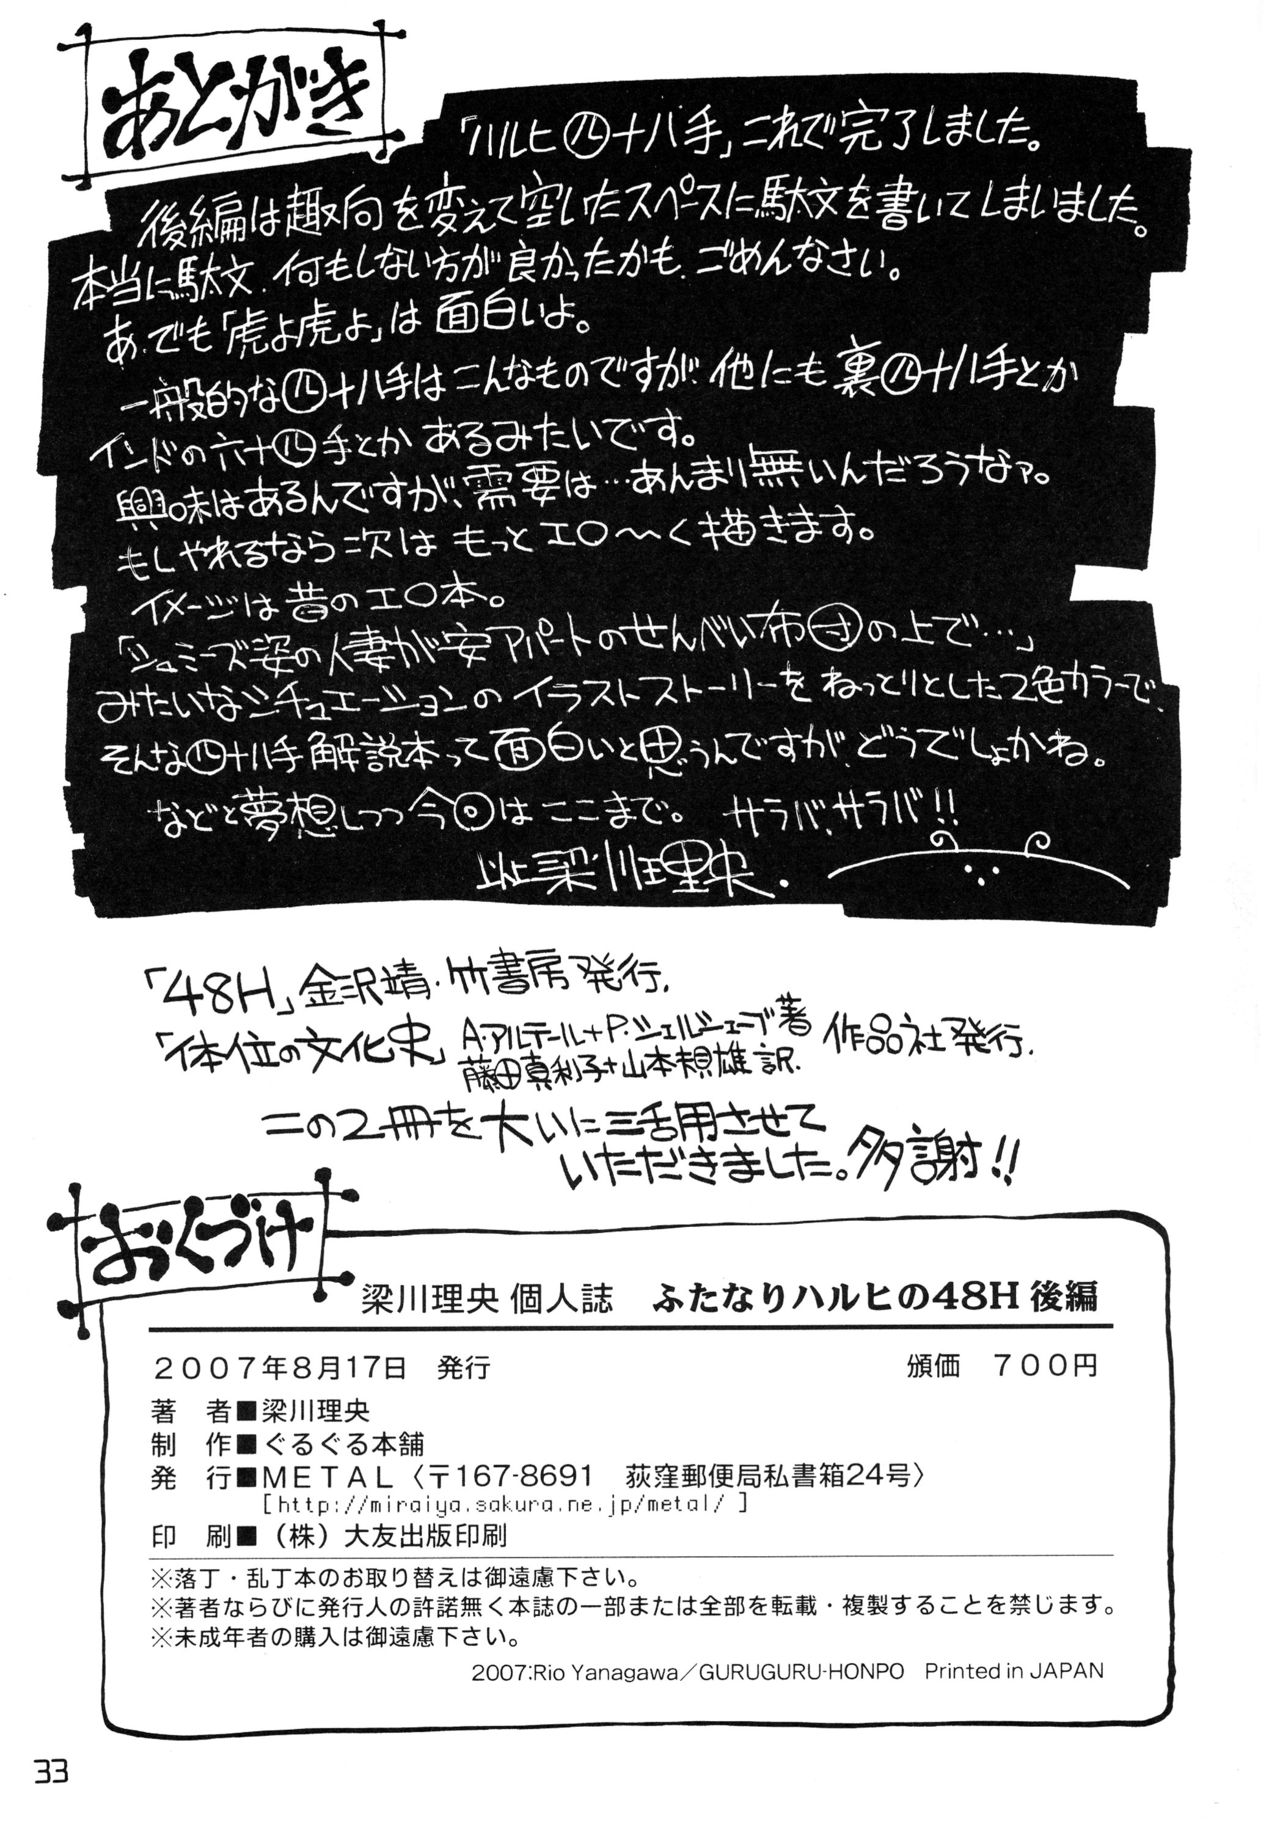 あとがき
「ハルヒ四十八手」これで完了しました。
後編は趣向を変えて空いたスペースに駄文を書いてしまいました。
本当に駄文、何もしない方が良かったかも、ごめんなさい。
あ、でも「虎よ虎よ」は面白いよ。
一般的な四十八手はこんなものですが、他にも裏四十八手とか
インドの六十四手とかあるみたいです。
興味はあるんですが、需要は…あんまり無いんだろうなァ。
もしやれるなら次はもっとエ〇〜く描きます。
イメージは昔のエ〇本。
「シュミーズ姿の人妻が安アパートのせんべい布団の上で…」
みたいなシチュエーションのイラストストーリーをねっとりとした2色カラーで、
そんな四十八手解説本って面白いと思うんですが、どうでしょかね。
などと夢想しつつ今回はここまで。 サラバ、サラバ!!
以上梁川理央.
「48H」金沢靖・竹書房発行.
「体位の文化史」A・アルテール+P・シェルシェーブ著
藤田真利子+山本規雄訳 作品社発行.
この2冊を大いに活用させて
いただきました。多謝!!
おくづけ
梁川理央 個人誌 ふたなりハルヒの48H 後編
2007年8月17日 発行 頒価 700円
著 者■梁川理央
制 作■ぐるぐる本舗
発 行■METAL〈〒167-8691 荻窪郵便局私書箱24号〉
[http://miraiya.sakura.ne.jp/metal/ ]
印 刷■（株）大友出版印刷
※落丁・乱丁本のお取り替えは御遠慮下さい。
※著者ならびに発行人の許諾無く本誌の一部または全部を転載・複製することを禁じます。
※未成年者の購入は御遠慮下さい。
2007:Rio Yanagawa／GURUGURU-HONPO Printed in JAPAN
33